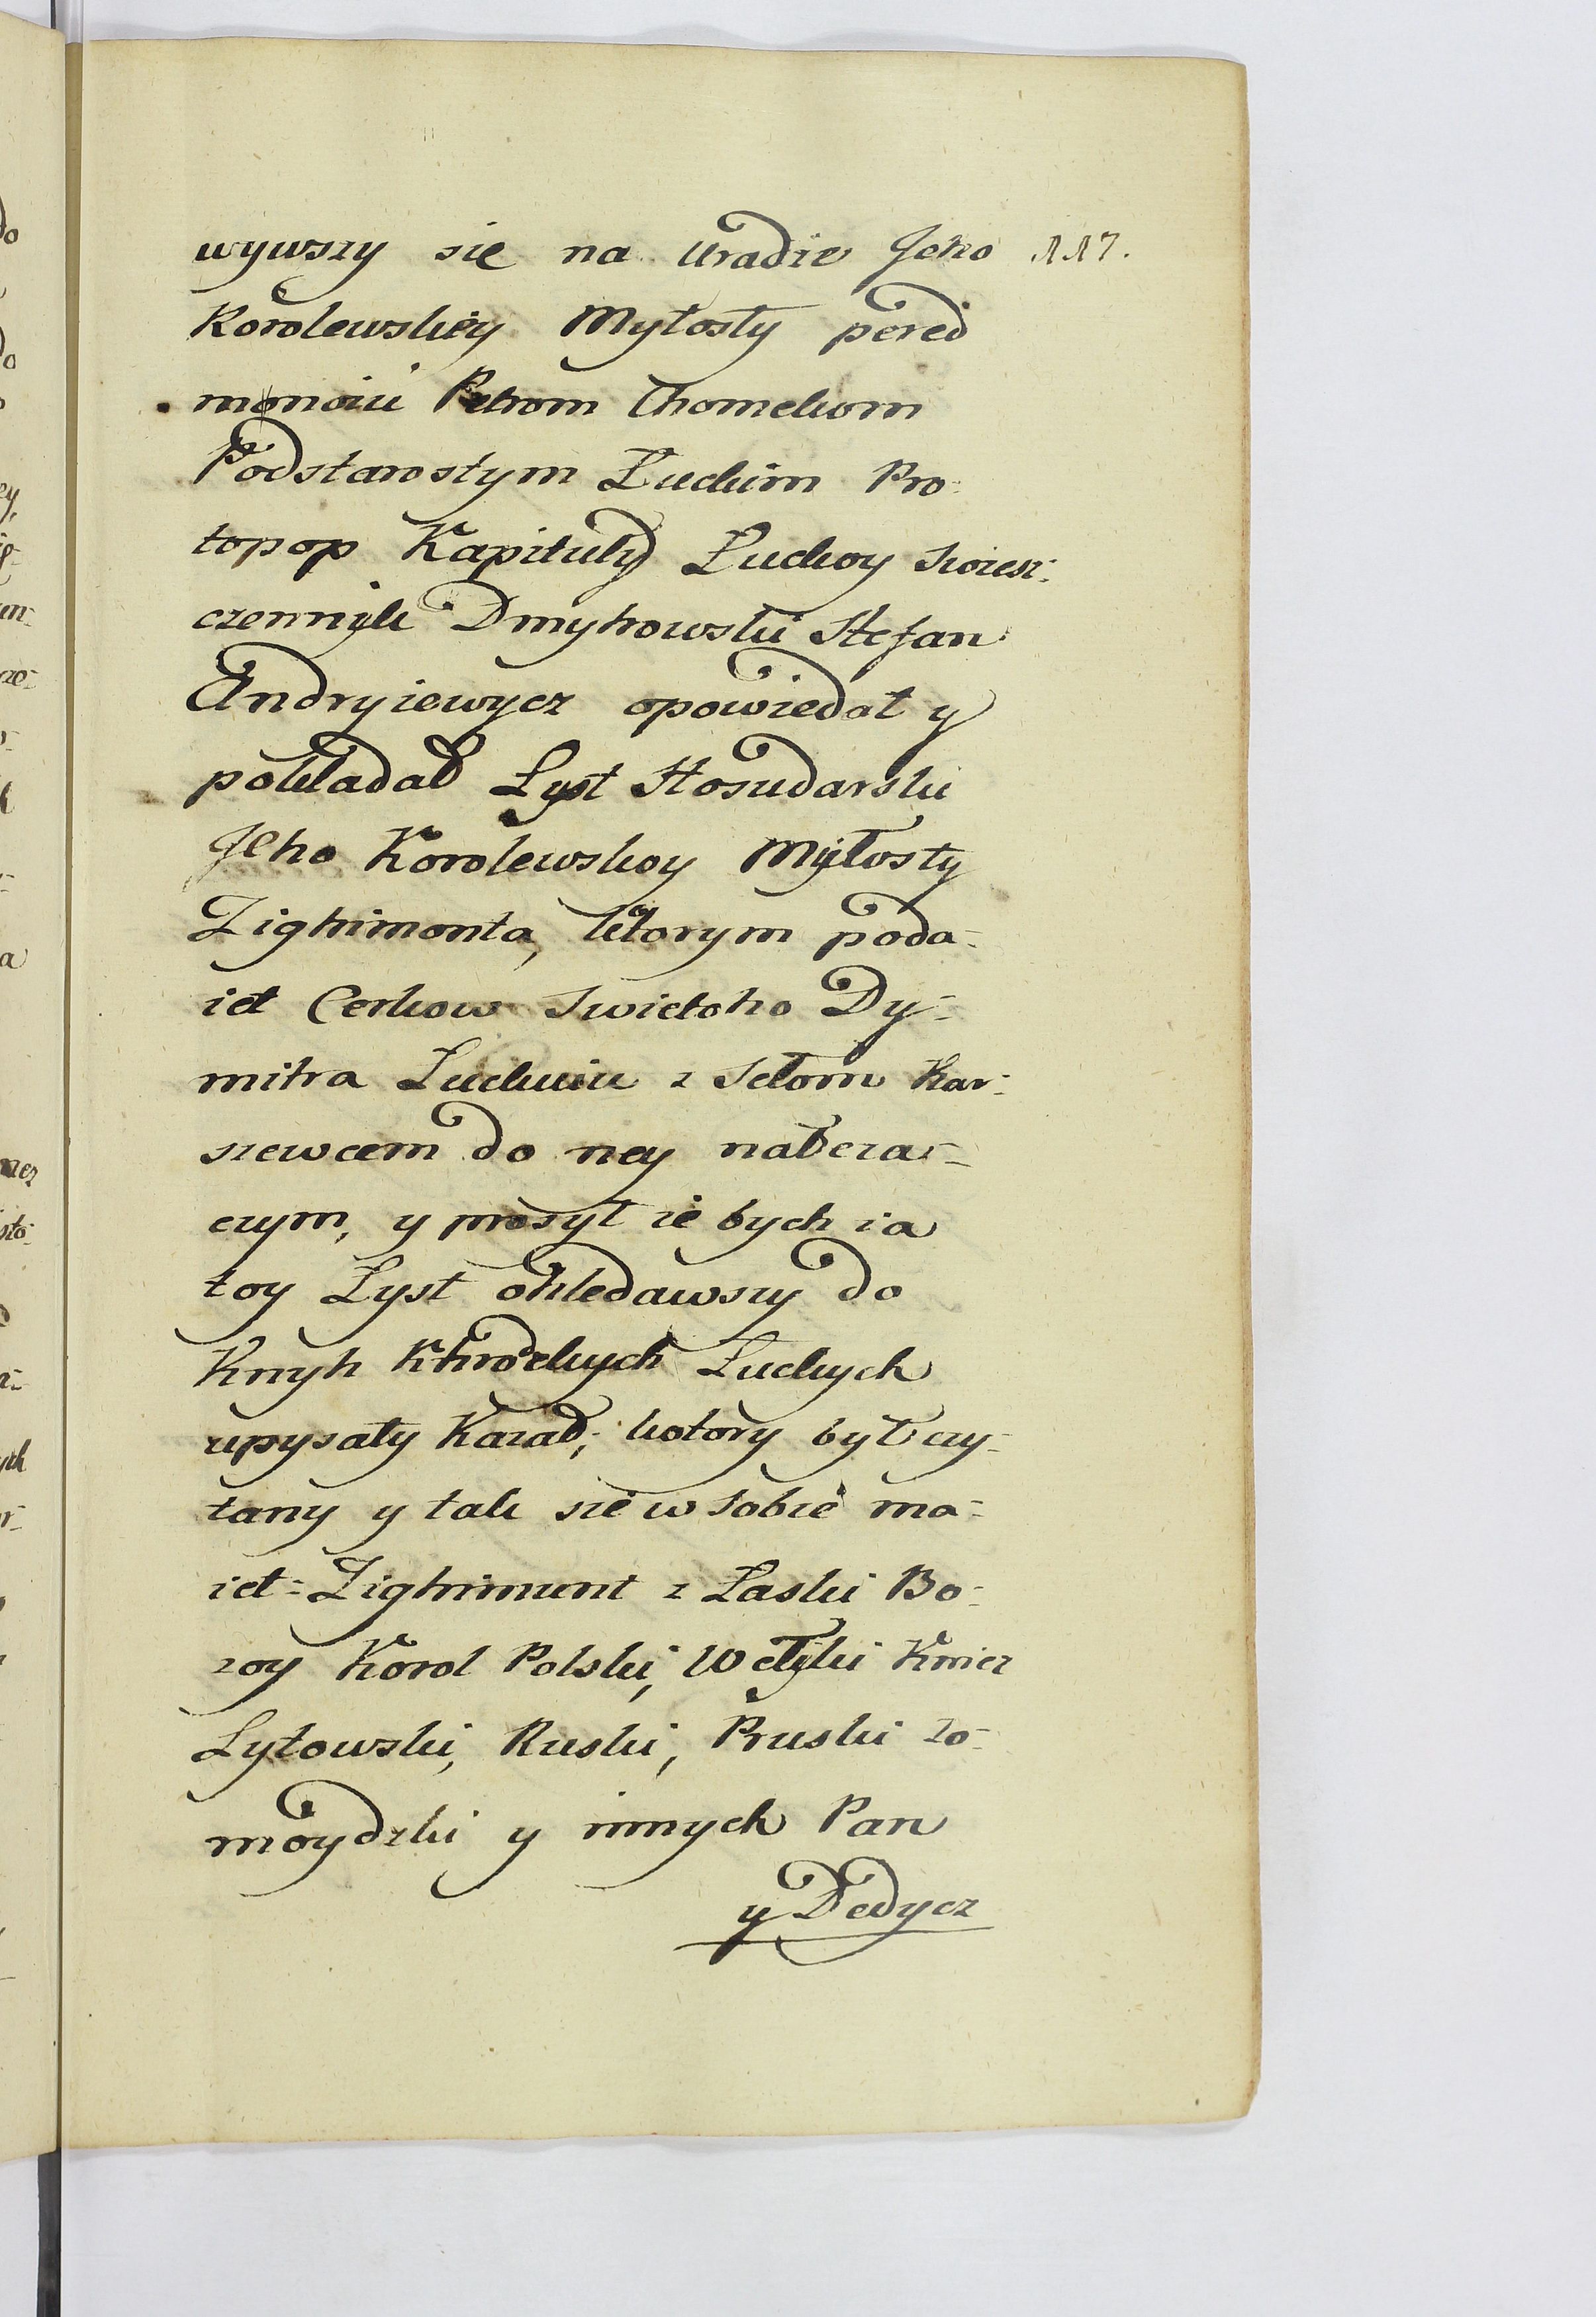 wywszy się na Uradie Jeho 117.
Korolewskiey Myłosty pered
mnoiu Petrom Chomekom
Podstarostym Łuckim Pro-
topop Kapituły Łuckoy Swiesz-
czennyk Dmytrowski Stefan
Andryiewycz opowiedał y
pokładał Lyst Hosudarski
Jeho Korolewskoy Myłosty
Zighimonta, kłorym poda-
iet Cerkow Swietoho Dy-
mitra Łuckuiu z Sełom Kar-
szewcem do ney nałeża-
czym, y prosył że bych ia
toy Lyst ohledawszy do
Knyh Khrodzkych Łuckych
upysaty Kazał; kotory był czy-
tany y tak się w sobie ma-
iet: Zighimunt z Łaski Bo-
żoy Korol Polski, Wełyki Kniez
Lytowski, Ruski, Pruski Żo-
moydzki y innych Pan
y Dedycz